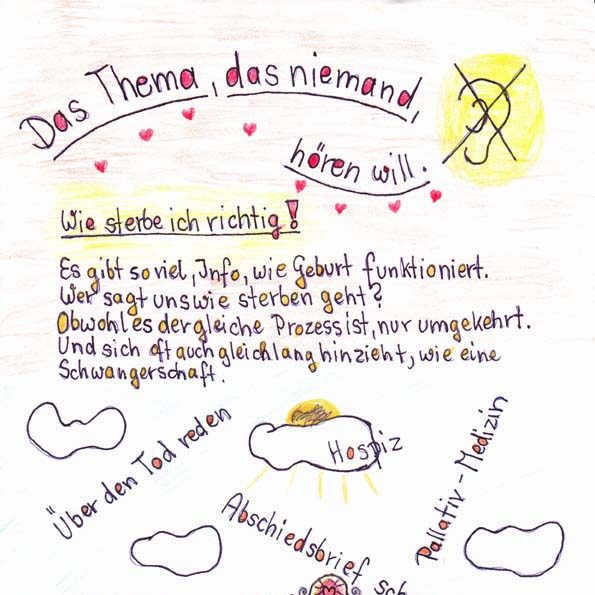 Das Thema, das niemand,
hören will.
Wie sterbe ich richtig!
Es gibt so viel, Info, wie Geburt funktioniert.
Wer sagt uns wie sterben geht?
Obwohl es der gleiche Prozess ist, nur umgekehrt.
Und sich oft auch gleich lang hinzieht, wie eine
Schwangerschaft.
Über den Tod reden
Hospiz
Pallativ-Medizin
Abschiedsbrief sch